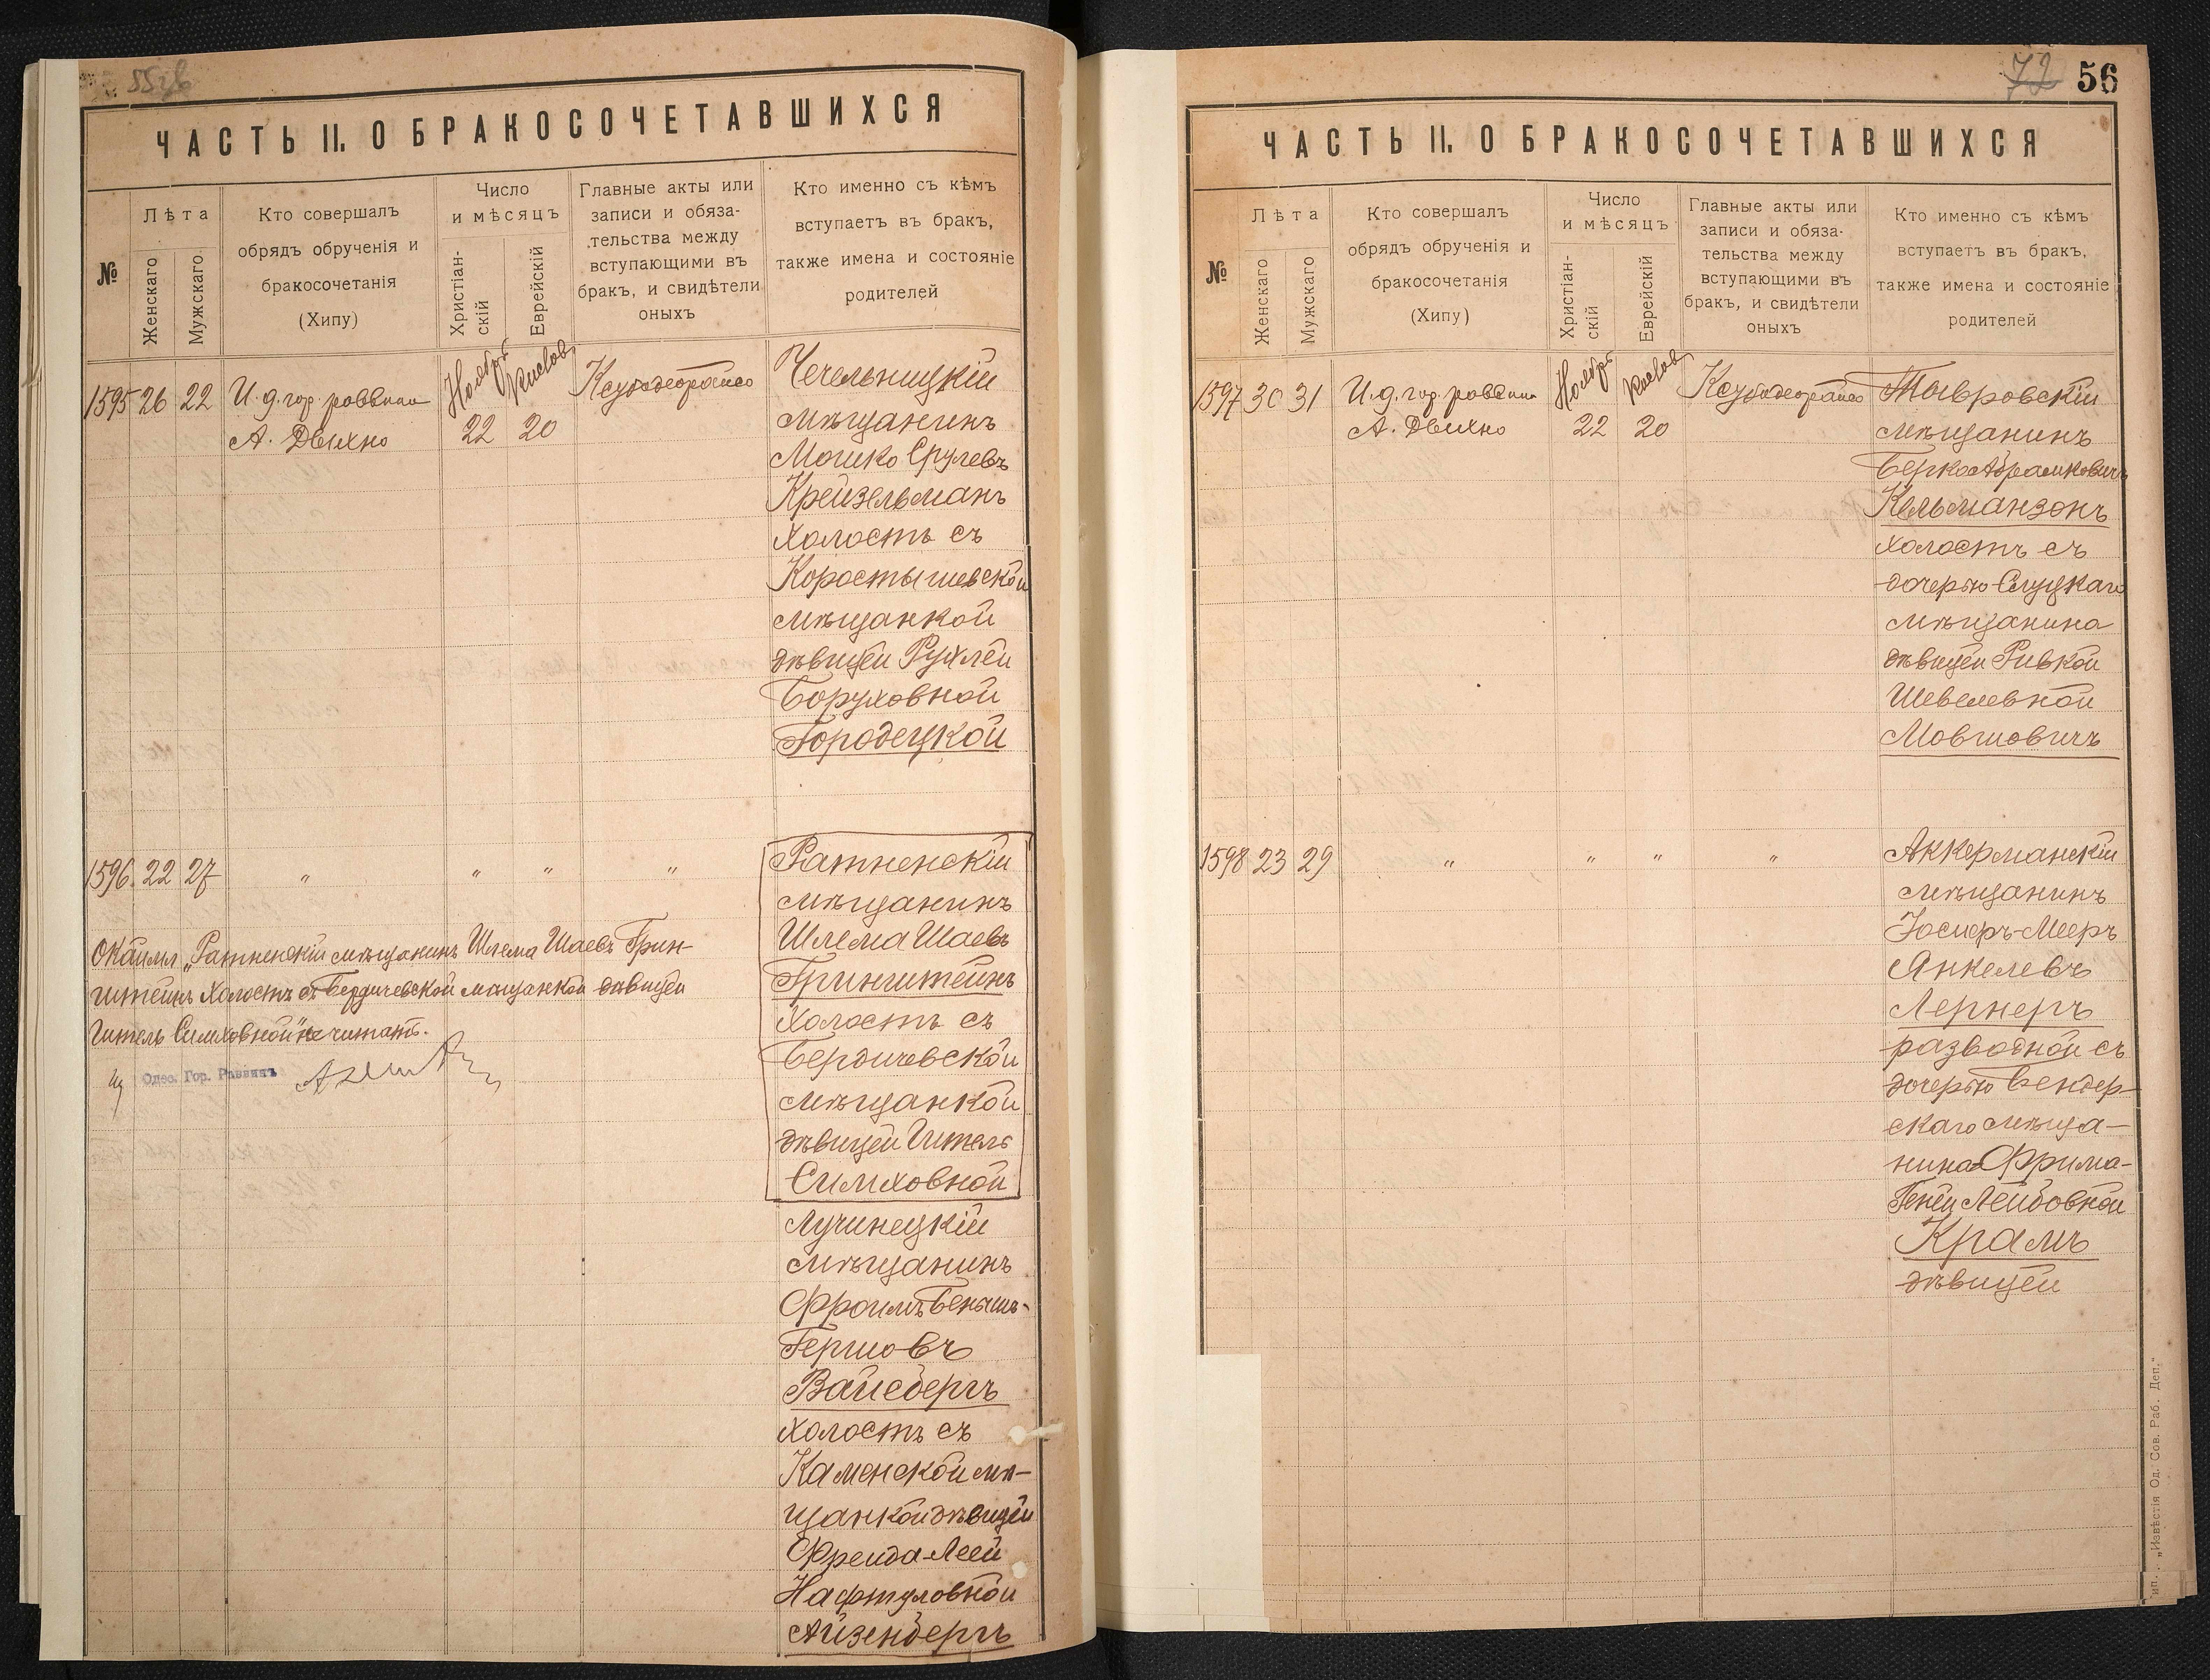 ЧАСТЬ II. О БРАКОСОЧЕТАВШИХСЯ
№
Лѣта
Женскаго
Мужскаго.
Кто совершалъ
обрядъ обрученія и
бракосочетанія
(Хипу)
Число
и мѣсяцъ
Христіан-
скій
Еврейскій
Главные акты или
записи и обяза-
тельства между
вступающими въ
бракъ, и свидѣтели
оныхъ
Кто именно съ кѣмъ
вступаетъ въ бракъ,
также имена и состояніе
родителей
1595 26 22
И. д. гор. раввина
А. Двихно
Ноябрь
22
Кислев
20
Чечельницкій
мѣщанинъ
Мошко Срулевъ
Крейзельманъ
холостъ съ
Коростышевской
мѣщанкой
дѣвицей Рухлей
Боруховной
Городецкой
1596 22 27
" " " "
Ратненскій
мѣщанинъ
Шлема Шаевъ
Гринштейнъ
холостъ съ
Бердичевской
мѣщанкой
дѣвицей Гитель
Симховной
Лучинецкій
мѣщанинъ
Фроимъ Беньимъ-
Гершовъ
Вайсбергъ
холостъ съ
Каменской мѣ-
щанкой дѣвицей
Фрейда-Леей
Нафтуловной
Айзенбергъ
"Ратненскій мѣщанинъ Шлема Шаевъ Грин-
штейнъ холостъ съ Бердичевской мѣщанкой дѣвицей
Гитель Симховной" не читать.
Одес. Гор. Раввинъ
72 56
ЧАСТЬ II. О БРАКОСОЧЕТАВШИХСЯ
№
Лѣта
Женскаго
Мужскаго
Кто совершалъ
обрядъ обрученія и
бракосочетанія
(Хипу)
Число
и мѣсяцъ
Христіан-
скій
Еврейскій
Главные акты или
записи и обяза-
тельства между
вступающими въ
бракъ, и свидѣтели
оныхъ
Кто именно съ кѣмъ
вступаетъ въ бракъ,
также имена и состояніе
родителей
1597 30 31
И. д. гор. раввина
А. Двихно
Ноябрь
22
Кислев
20
Тавровскій
мѣщанинъ
Берко Абрамковичъ
Кельманзонъ
холостъ съ
дочерью Слуцкаго
мѣщанина
дѣвицей Ривкой
Шевелевной
Мовшовичъ
1598 23 29
" " " "
Аккерманскій
мѣщанинъ
Іосифъ-Мееръ
Янкелевъ
Лернеръ
разводной съ
дочерью Бендер-
скаго мѣща-
нина Фрима-
Геней Лейбовной
Крамъ
дѣвицей
„Извѣстія Од. Сов. Раб. Деп."